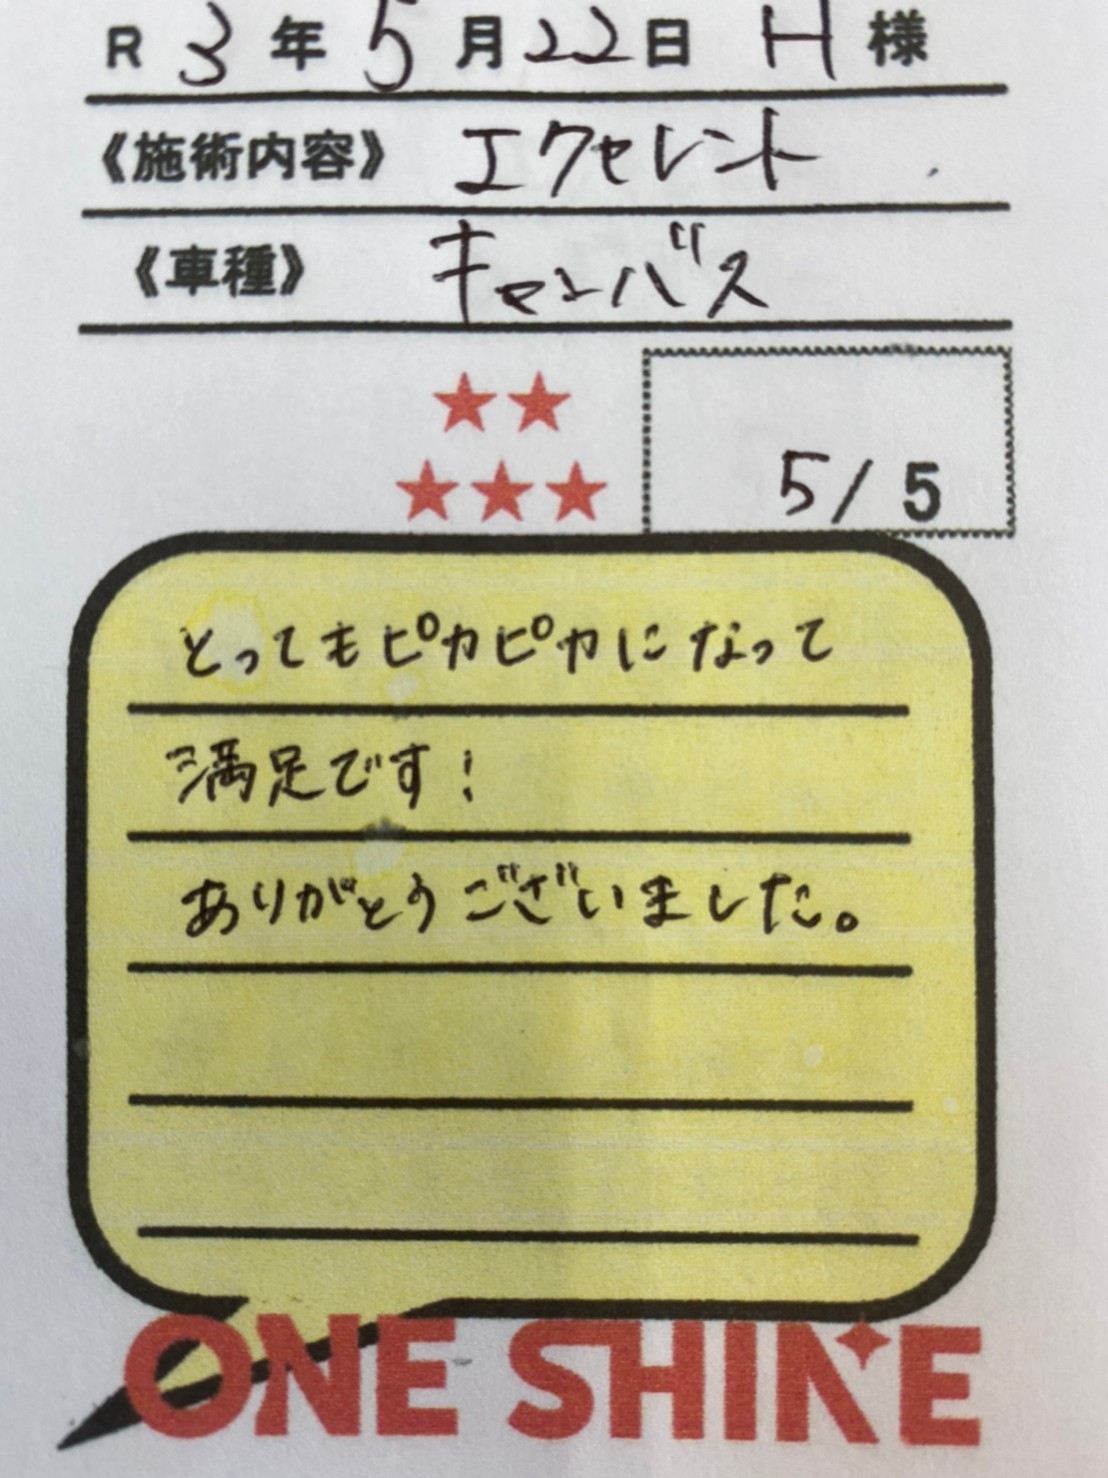 R 3年 5月22日 H 様
《施術内容》 エクセレント
《車種》 キャンバス
★★
★★★
5/5
とってもピカピカになって
満足です!
ありがとうございました。
ONE SHINE